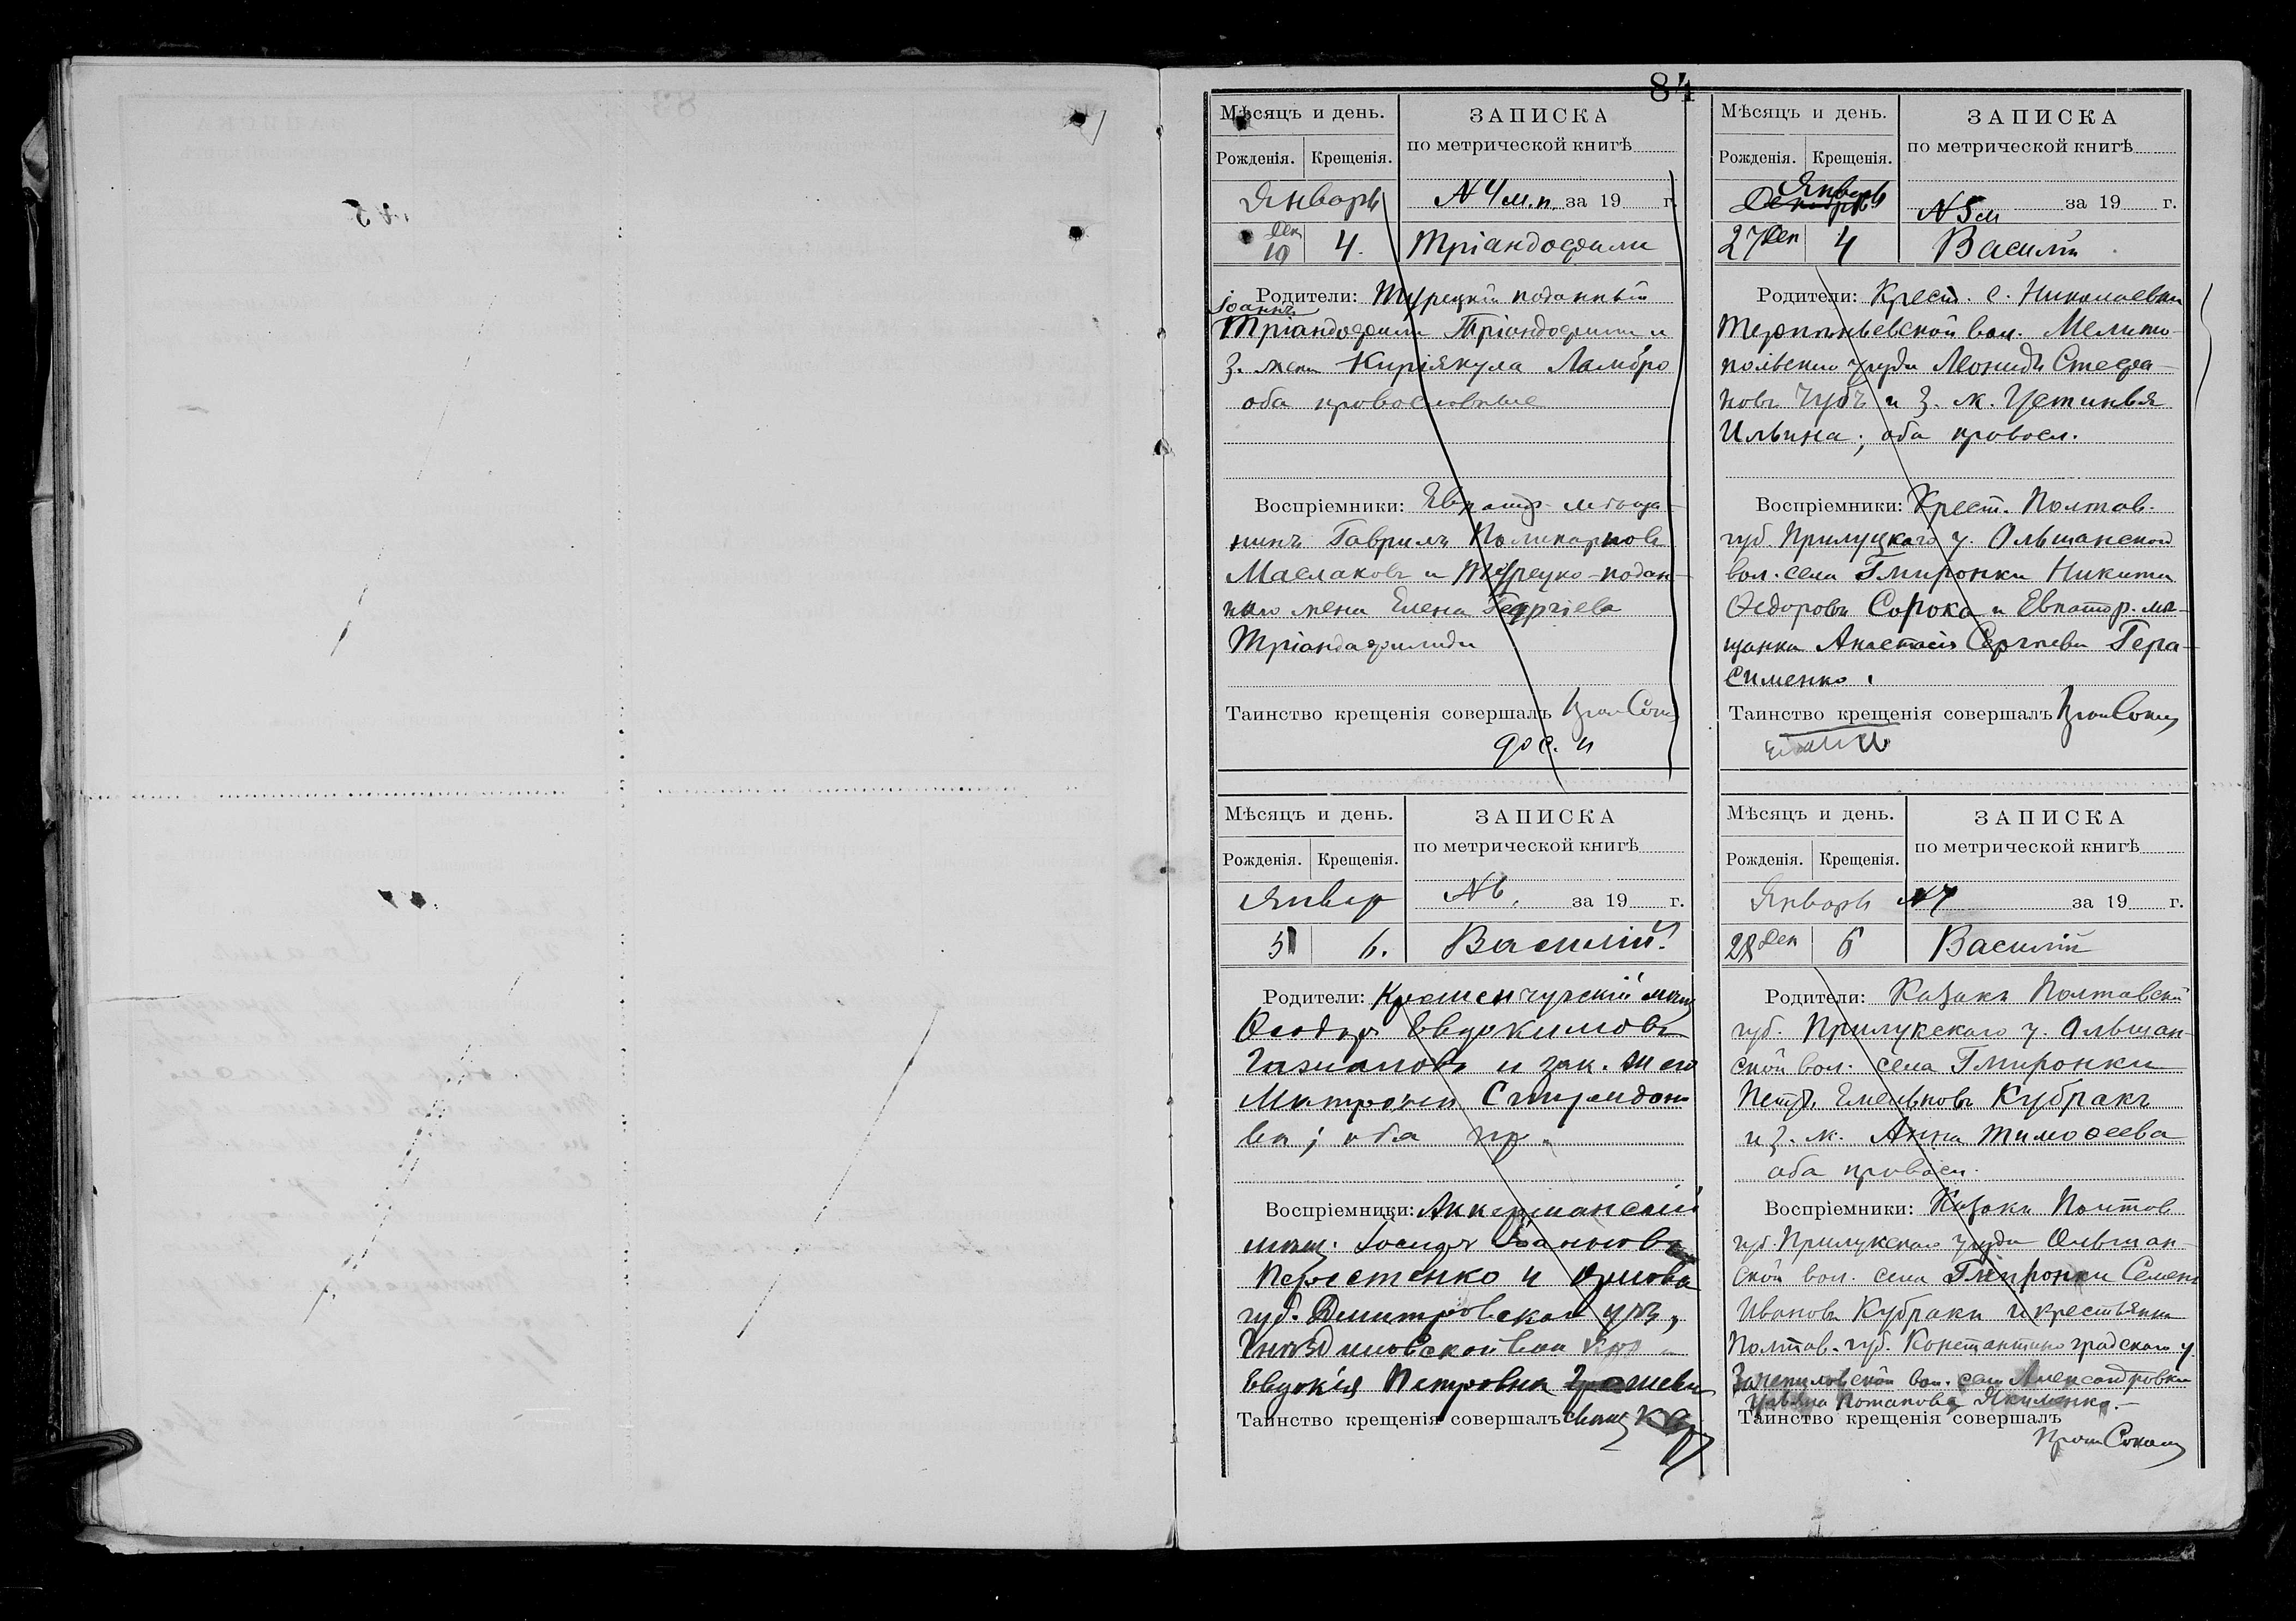 84
Мѣсяцъ и день.
Рожденія. Крещенія.
ЗАПИСКА
по метрической книгѣ
Январь
N 4 м.п. за 19 г.
Дек 19 4. Тріандофили
Родители: Турецкій подданный
Іоаннъ
Тріандофили Тріандофили и
з. жена Киріякула Ламбро
оба православные
Воспріемники: Евпатор. мѣща-
нинъ Гавриилъ Поликарповъ
Маслаковъ и Турецко-поддан-
наго жена Елена Георгіева
Тріандафилиди
Таинство крещенія совершалъ
Мѣсяцъ и день.
Рожденія. Крещенія.
ЗАПИСКА
по метрической книгѣ
Январь
N 5 м за 19 г.
27 Дек 4 Василій
Родители: Крест. с. Николаевки
вол. Мелито-
польскаго уѣзда Леонидъ Стефа-
новъ Чубъ и з. ж. Устинья
Ильина; оба правосл.
Воспріемники: Крест. Полтав.
губ. Прилуцкаго у. Ольшанской
вол. села Гмиронки Никита
Ѳедоровъ Сорока и Евпатор. мѣ-
щанка Анастасія Сергѣева Гера-
сименко.
Таинство крещенія совершалъ
Мѣсяцъ и день.
Рожденія. Крещенія.
ЗАПИСКА
по метрической книгѣ
Январ
N 6. за 19 г.
5 6. Василій
Родители: Кременчугскій мѣщ
Ѳеодоръ Евдокимовъ
и зак. ж его
Матрона Спиридоно
ва; оба пр.
Воспріемники: Аккерманскій
мѣщ. Іосифъ
и
губ. Димитровскаго
Евдокія Петровна
Таинство крещенія совершалъ свящ
Мѣсяцъ и день.
Рожденія. Крещенія.
ЗАПИСКА
по метрической книгѣ
Январь
N 7 за 19 г.
28 Дек 6 Василій
Родители: Казакъ Полтавской
губ. Прилукскаго у. Ольшан-
ской вол. села Гмиронки
Петръ Емельяновъ Кубракъ
и з. ж. Анна Тимоѳеева
оба правосл.
Воспріемники: Казаки Полтав
губ. Прилукскаго уѣзда Ольшан-
ской вол. села Гмиронки Семенъ
Ивановъ Кубракъ и крестьянка
Полтав. губ. Константиноградскаго у.
Зачепиловской вол. села Александровки
Ульяна Потапова Якименко.
Таинство крещенія совершалъ